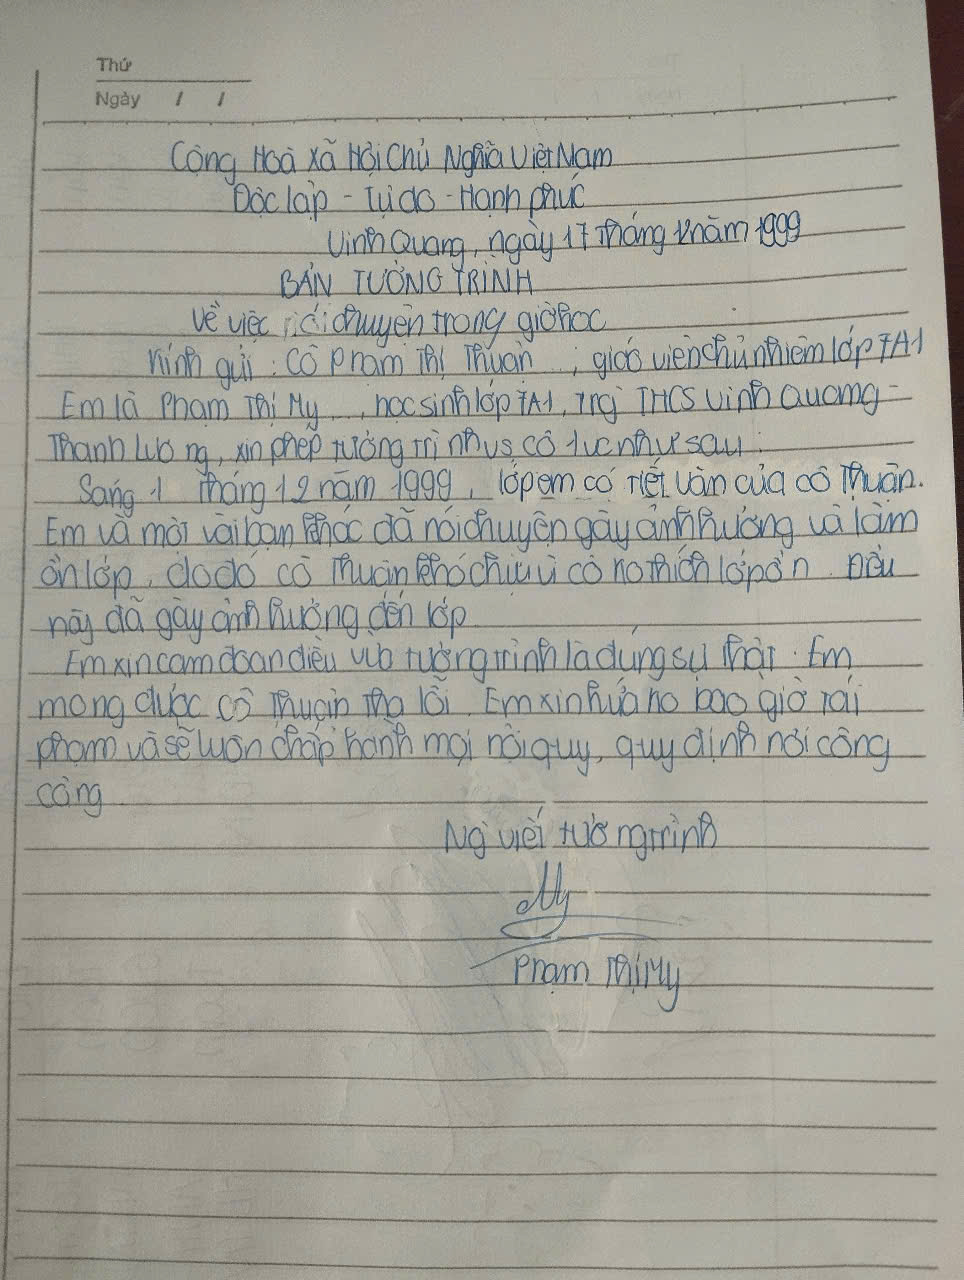 Thứ
Ngày / /
Cộng Hoà Xã Hội Chủ Nghĩa Việt Nam
Độc lập - Tự do - Hạnh phúc
Vinh Quang, ngày 17 tháng 12 năm 1999
BẢN TƯỜNG TRÌNH
Về việc nói chuyện trong giờ học
Kính gửi : Cô Phạm Thị Thuận , giáo viên chủ nhiệm lớp 7A1
Em là Phạm Thị My , học sinh lớp 7A1, trg THCS Vinh Quang -
Thanh Lương, xin phép tường trình vs cô 1 vc như sau :
Sáng 1 tháng 12 năm 1999, lớp em có tiết văn của cô Thuận.
Em và một vài bạn khác đã nói chuyện gây ảnh hưởng và làm
ồn lớp, do đó cô Thuận khó chịu vì cô ko thích lớp ồn. Điều
này đã gây ảnh hưởng đến lớp
Em xin cam đoan điều vừa tường trình là đúng sự thật. Em
mong được cô Thuận tha lỗi. Em xin hứa ko bao giờ tái
phạm và sẽ luôn chấp hành mọi nội quy, quy định nơi công
cộng
Ng viết tường trình
My
Phạm Thị My